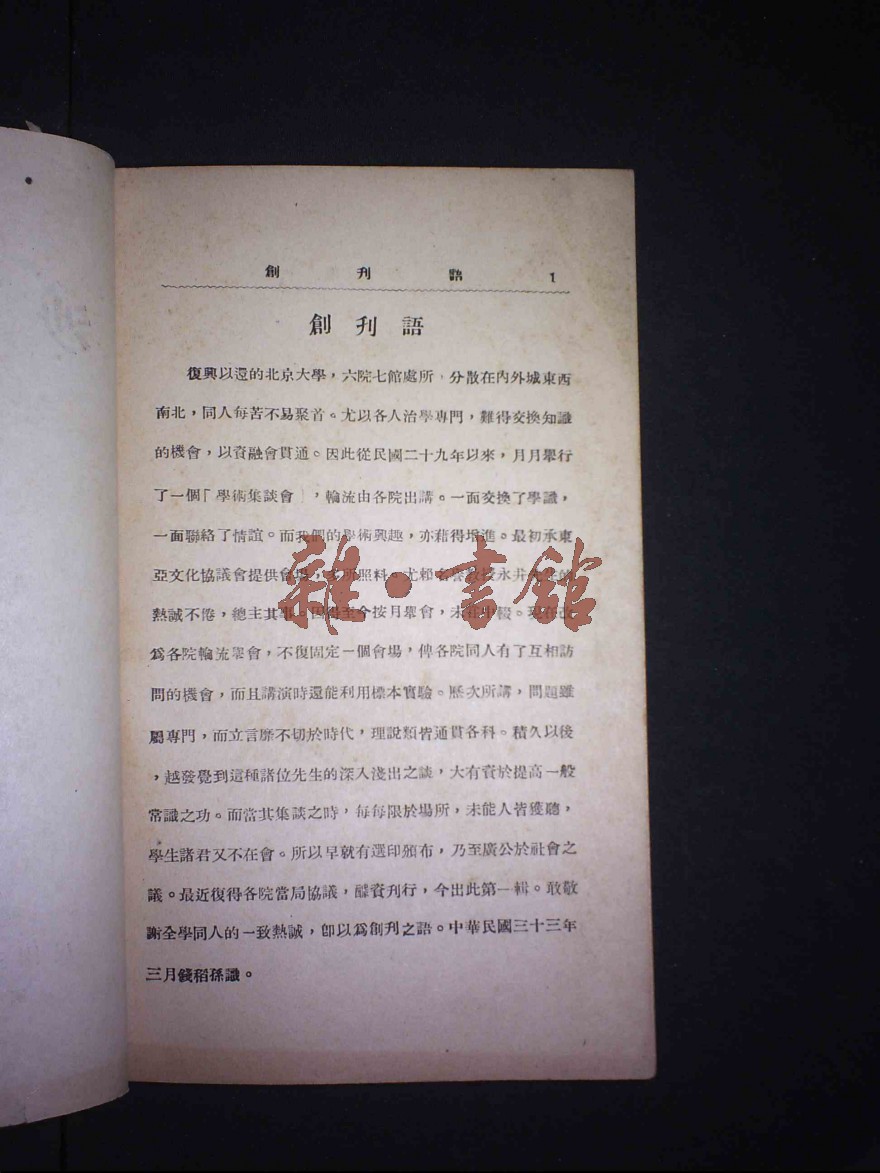 創刊語 1
創刊語
復興以還的北京大學，六院七館處所，分散在內外城東西
南北，同人每苦不易聚首。尤以各人治學專門，難得交換知識
的機會，以資融會貫通。因此從民國二十九年以來，月月舉行
了一個「學術集談會」，輪流由各院出講。一面交換了學識，
一面聯絡了情誼。而我們的學術興趣，亦藉得增進。最初承東
亞文化協議會提供會場，多所照料。尤賴名譽教授永井先生的
熱誠不倦，總主其事。因得至今按月舉會，未任中輟。現在改
爲各院輪流舉會，不復固定一個會場，俾各院同人有了互相訪
問的機會，而且講演時還能利用標本實驗。歷次所講，問題雖
屬專門，而立言靡不切於時代，理說類皆通貫各科。積久以後
，越發覺到這種諸位先生的深入淺出之談，大有資於提高一般
常識之功。而當其集談之時，每每限於場所，未能人皆獲聽，
學生諸君又不在會。所以早就有選印頒布，乃至廣公於社會之
議。最近復得各院當局協議，醵資刊行，今出此第一輯。敢敬
謝全學同人的一致熱誠，卽以爲創刊之語。中華民國三十三年
三月錢稻孫識。
雜·書館